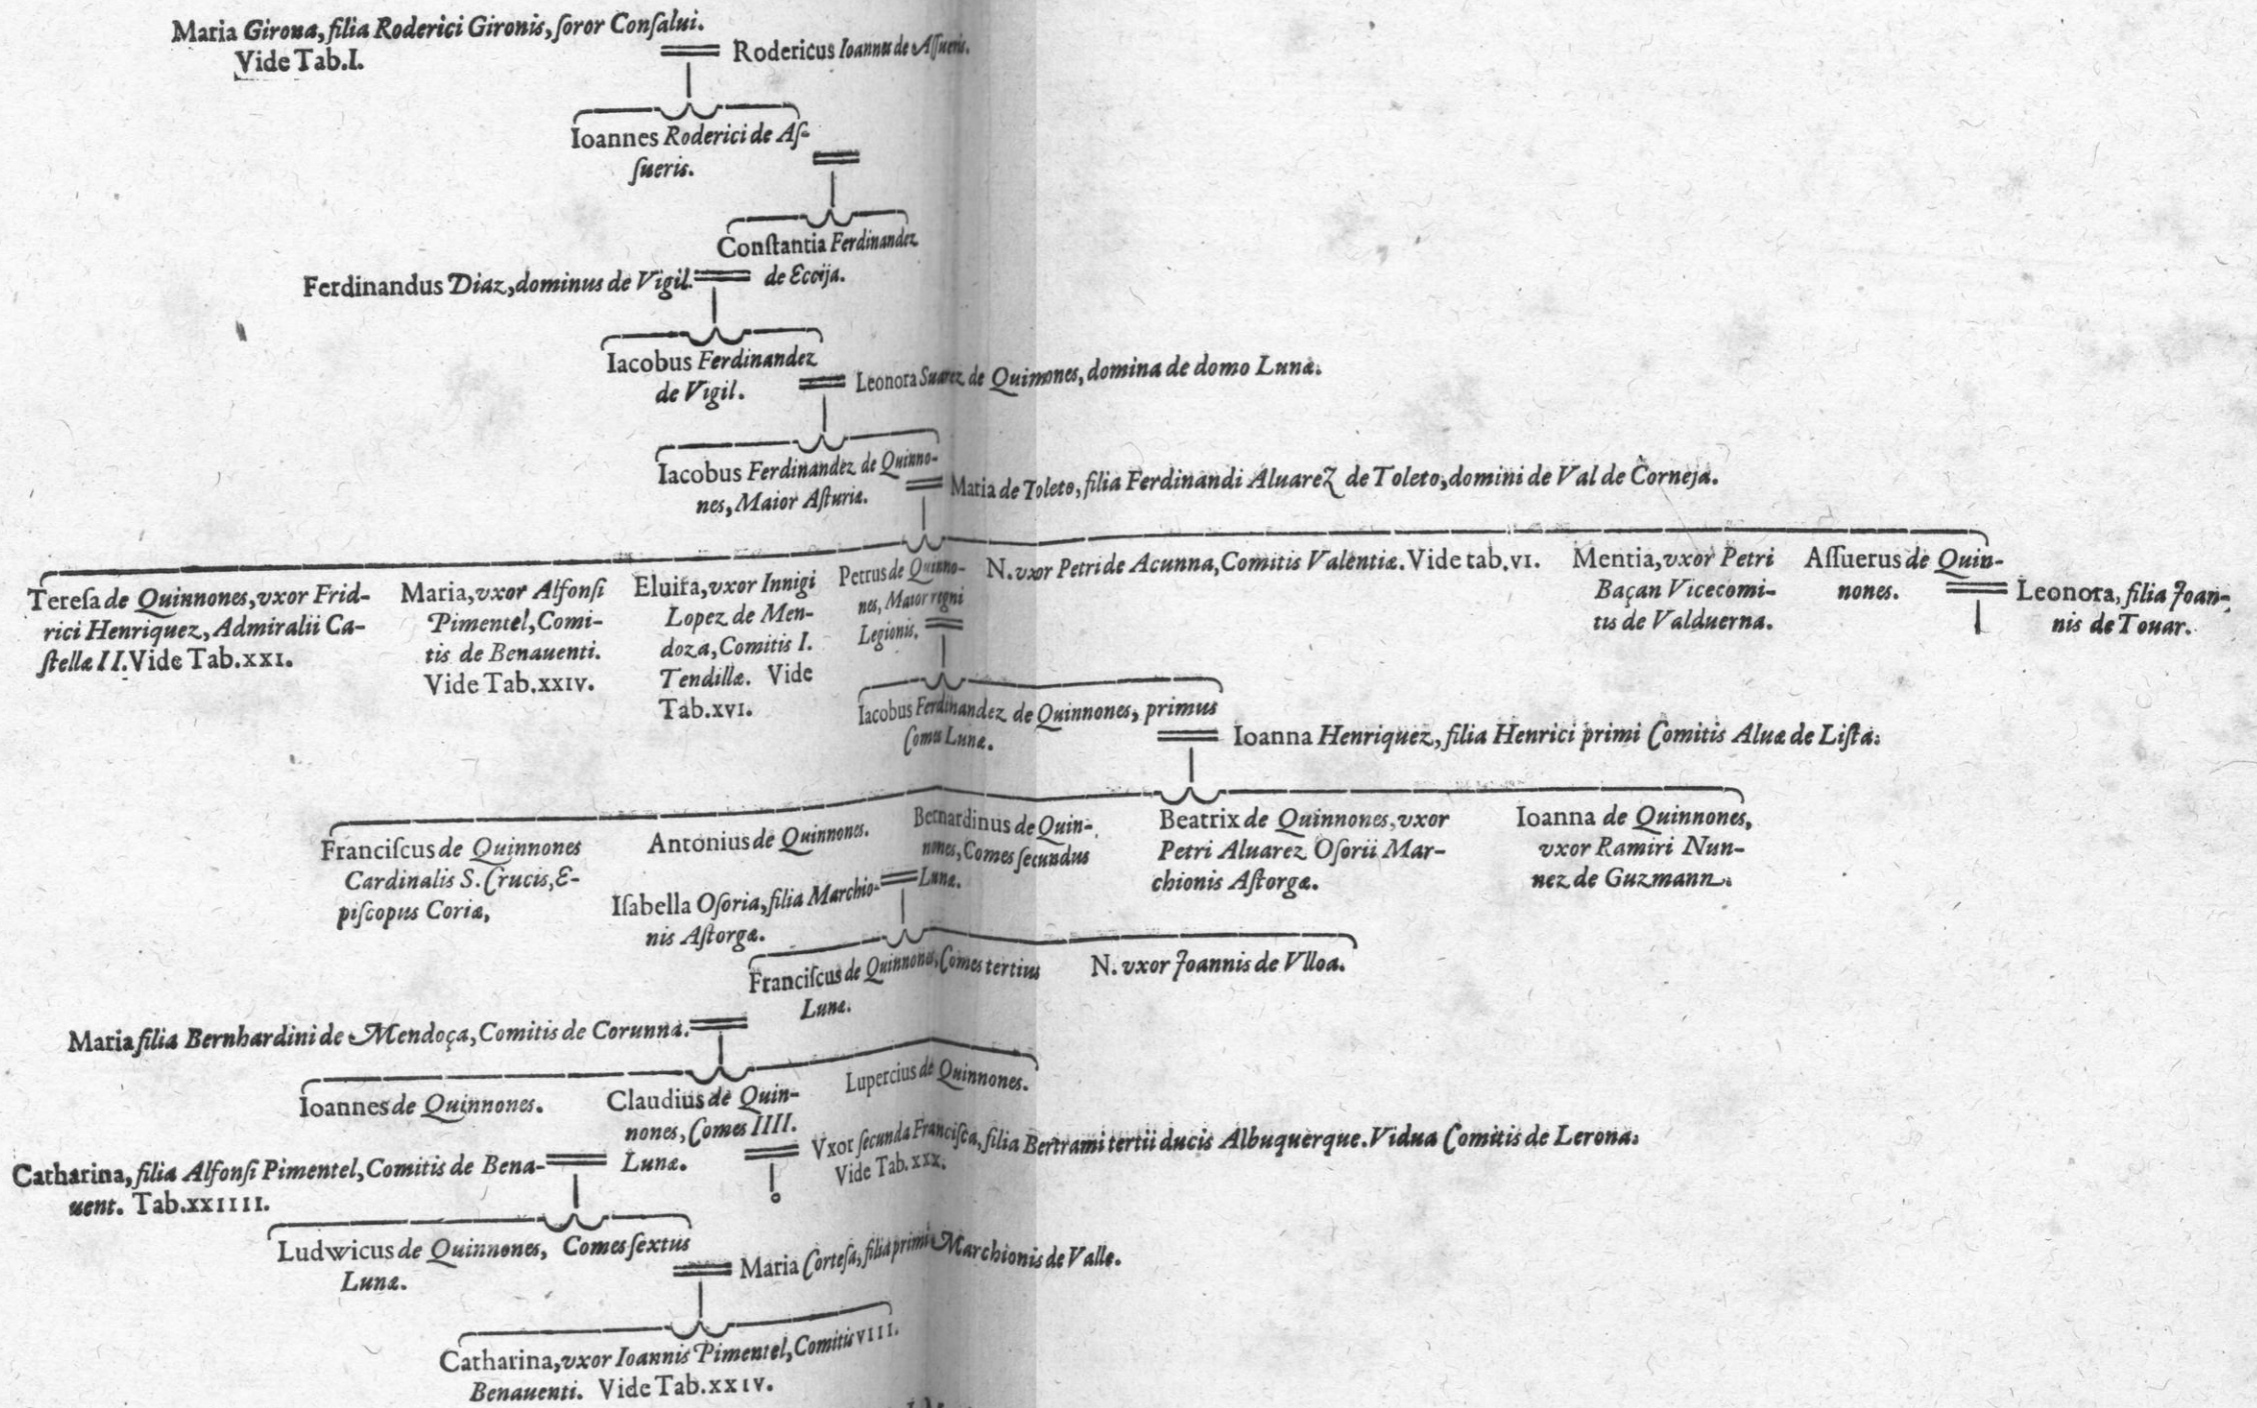 Maria Girona, filia Roderici Gironis, ſoror Conſalui.
Vide Tab.I.
Rodericus Ioannes de Aſſueris.
Ioannes Roderici de Aſ-
ſueris.
Conſtantia Ferdinandez
de Eccija.
Ferdinandus Diaz, dominus de Vigil.
Iacobus Ferdinandez
de Vigil.
Leonora Suarez de Quinnones, domina de domo Lunæ.
Iacobus Ferdinandez de Quinno-
nes, Maior Aſturiæ.
Maria de Toleto, filia Ferdinandi Aluarez de Toleto, domini de Val de Corneja.
Tereſa de Quinnones, vxor Frid-
rici Henriquez, Admiralii Ca-
ſtellæ II. Vide Tab.XXI.
Maria, vxor Alfonſi
Pimentel, Comi-
tis de Benauenti.
Vide Tab.XXIV.
Eluira, vxor Innigi
Lopez de Men-
doza, Comitis I.
Tendillæ. Vide
Tab.XVI.
Petrus de Quinno-
nes, Maior regni
Legionis.
N. vxor Petri de Acunna, Comitis Valentiæ. Vide tab.VI.
Mentia, vxor Petri
Baçan Vicecomi-
tis de Valduerna.
Aſſuerus de Quin-
nones.
Leonora, filia Joan-
nis de Touar.
Iacobus Ferdinandez de Quinnones, primus
Comes Lunæ.
Ioanna Henriquez, filia Henrici primi Comitis Aluæ de Liſta.
Franciſcus de Quinnones
Cardinalis S. Crucis, E-
piſcopus Coriæ,
Antonius de Quinnones.
Bernardinus de Quin-
nones, Comes ſecundus
Lunæ.
Iſabella Oſoria, filia Marchio-
nis Aſtorgæ.
Beatrix de Quinnones, vxor
Petri Aluarez Oſorii Mar-
chionis Aſtorgæ.
Ioanna de Quinnones,
vxor Ramiri Nun-
nez de Guzmann.
Franciſcus de Quinnones, Comes tertius
Lunæ.
N. vxor Joannis de Vlloa.
Maria filia Bernhardini de Mendoça, Comitis de Corunna.
Ioannes de Quinnones.
Claudius de Quin-
nones, Comes IIII.
Lunæ.
Lupercius de Quinnones.
Vxor ſecunda Franciſca, filia Bertrami tertii ducis Albuquerque. Vidua Comitis de Lerona.
Vide Tab.XXX.
Catharina, filia Alfonſi Pimentel, Comitis de Bena-
uent. Tab.XXIIII.
Ludwicus de Quinnones, Comes ſextus
Lunæ.
Maria Corteſa, filia primi Marchionis de Valle.
Catharina, vxor Ioannis Pimentel, Comitis VIII.
Benauenti. Vide Tab.XXIV.